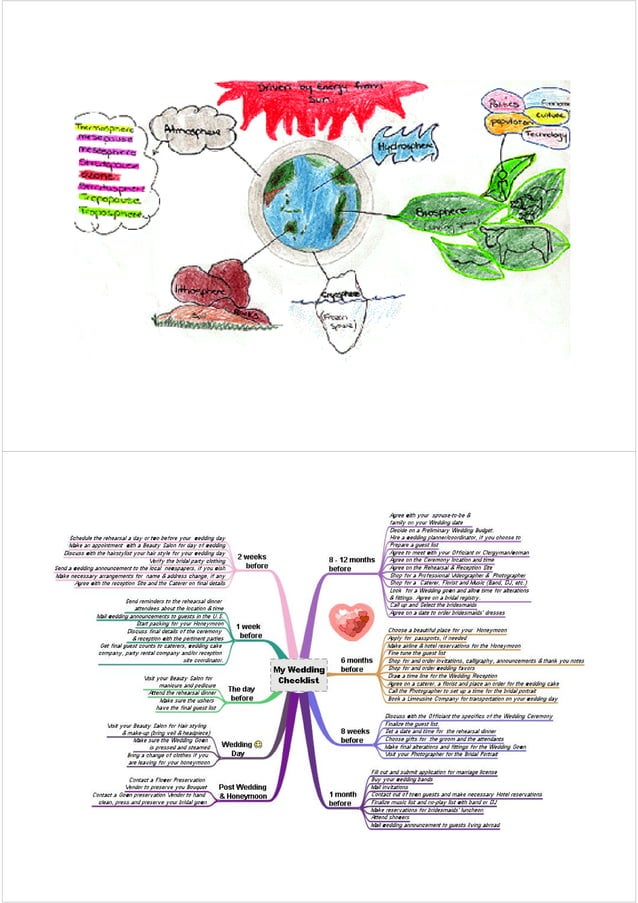 Driven by Energy from
Sun
Politics
Culture
population
Technology
Thermosphere
mesopause
mesosphere
Stratopause
ozone
Tropopause
Troposphere
Atmosphere
Hydrosphere
Biosphere
Lithosphere
Cryosphere
(Frozen
Space)
My Wedding
Checklist
8 - 12 months
before
Agree with your spouse-to-be &
family on your Wedding date
Decide on a Preliminary Wedding Budget.
Hire a wedding planner/coordinator, if you choose to
Prepare a guest list
Agree to meet with your Officiant or Clergyman/woman
Agree on the Ceremony location and time
Agree on the Rehearsal & Reception Site
Shop for a Professional Videographer & Photographer
Shop for a Caterer, Florist and Music (Band, DJ, etc.)
Look for a Wedding gown and allow time for alterations
& fittings. Agree on a bridal registry.
Call up and Select the bridesmaids
Agree on a date to order bridesmaids' dresses
6 months
before
Choose a beautiful place for your Honeymoon
Apply for passports, if needed
Make airline & hotel reservations for the Honeymoon
Fine tune the guest list
Shop for and order invitations, calligraphy, announcements & thank you notes
Shop for and order wedding favors
Draw a time line for the Wedding Reception
Agree on a caterer, a florist and place an order for the wedding cake
Call the Photographer to set up a time for the bridal portrait
Book a Limousine Company for transportation on your wedding day
8 weeks
before
Discuss with the Officiant the specifics of the Wedding Ceremony
Finalize the guest list
Set a date and time for the rehearsal dinner
Choose gifts for the groom and the attendants
Make final alterations and fittings for the Wedding Gown
Visit your Photographer for the Bridal Portrait
1 month
before
Fill out and submit application for marriage license
Buy your wedding bands
Mail invitations
Contact out of town guests and make necessary Hotel reservations
Finalize music list and no-play list with band or DJ
Make reservations for bridesmaids' luncheon
Attend showers
Mail wedding announcement to guests living abroad
2 weeks
before
Schedule the rehearsal a day or two before your wedding day
Make an appointment with a Beauty Salon for day of wedding
Discuss with the hairstylist your hair style for your wedding day
Verify the bridal party clothing
Send a wedding announcement to the local newspapers, if you wish
Make necessary arrangements for name & address change, if any
Agree with the reception Site and the Caterer on final details
1 week
before
Send reminders to the rehearsal dinner
attendees about the location & time
Mail wedding announcements to guests in the U.S.
Start packing for your Honeymoon
Discuss final details of the ceremony
& reception with the pertinent parties
Get final guest counts to caterers, wedding cake
company, party rental company and/or reception
site coordinator.
The day
before
Visit your Beauty Salon for
manicure and pedicure
Attend the rehearsal dinner
Make sure the ushers
have the final guest list
Wedding
Day
Visit your Beauty Salon for Hair styling
& make-up (bring veil & headpiece)
Make sure the Wedding Gown
is pressed and steamed
Bring a change of clothes if you
are leaving for your honeymoon
Post Wedding
& Honeymoon
Contact a Flower Preservation
Vendor to preserve you Bouquet
Contact a Gown preservation Vendor to hand
clean, press and preserve your bridal gown